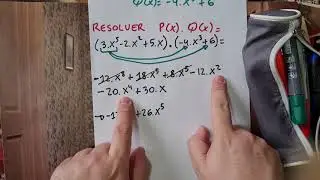 Q(x)= -4.x³ + 6
RESOLVER P(x). Q(x)=
(3.x⁵-2.x²+5.x).(-4.x³+6)=
-12.x⁸ + 18.x⁵ + 8.x⁵ -12.x²
-20.x⁴ + 30.x
+26.x⁵